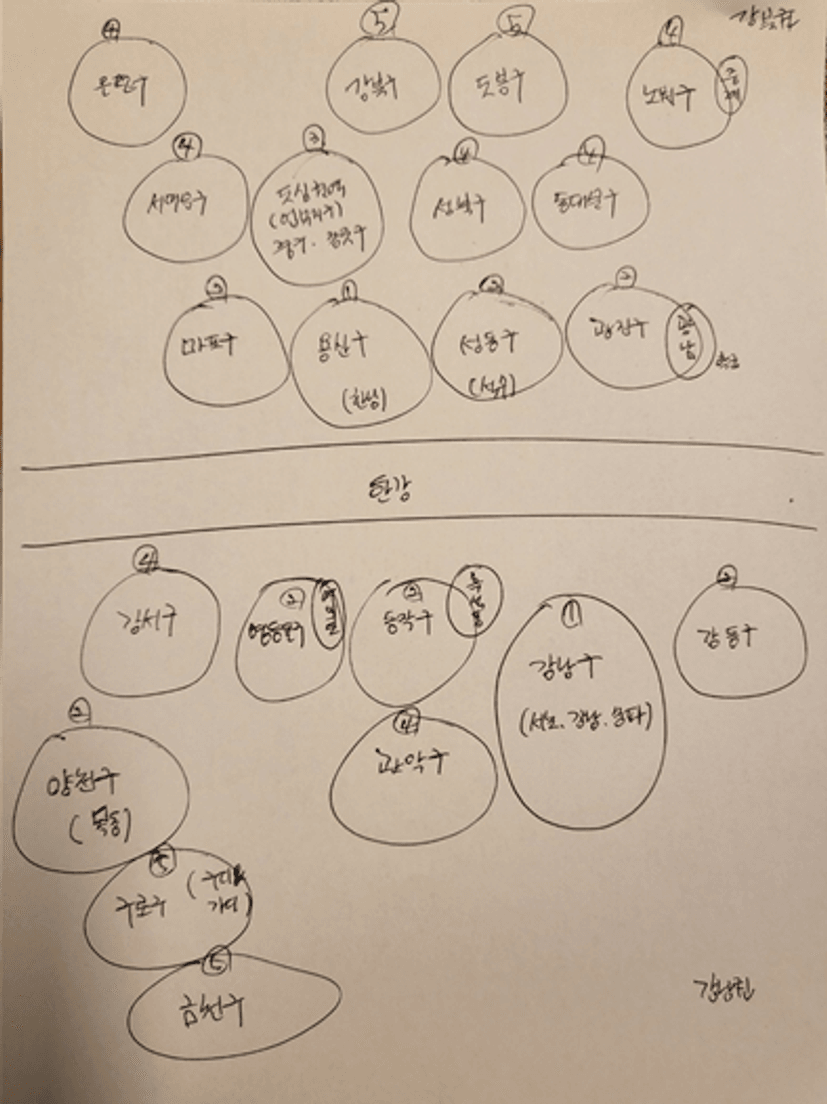 강북권
④
은평구
⑤
강북구
⑤
도봉구
④
노원구
중계
④
서대문구
③
도심권역
(업무지구)
중구. 종로구
④
성북구
④
동대문구
②
마포구
①
용산구
(한남)
②
성동구
(성수)
②
광진구
광남
한강
④
강서구
②
영등포구
여의도
②
동작구
흑석동
①
강남구
(서초. 강남. 송파)
②
강동구
②
양천구
(목동)
④
관악구
⑤
구로구
(구디
가디)
⑤
금천구
강남권